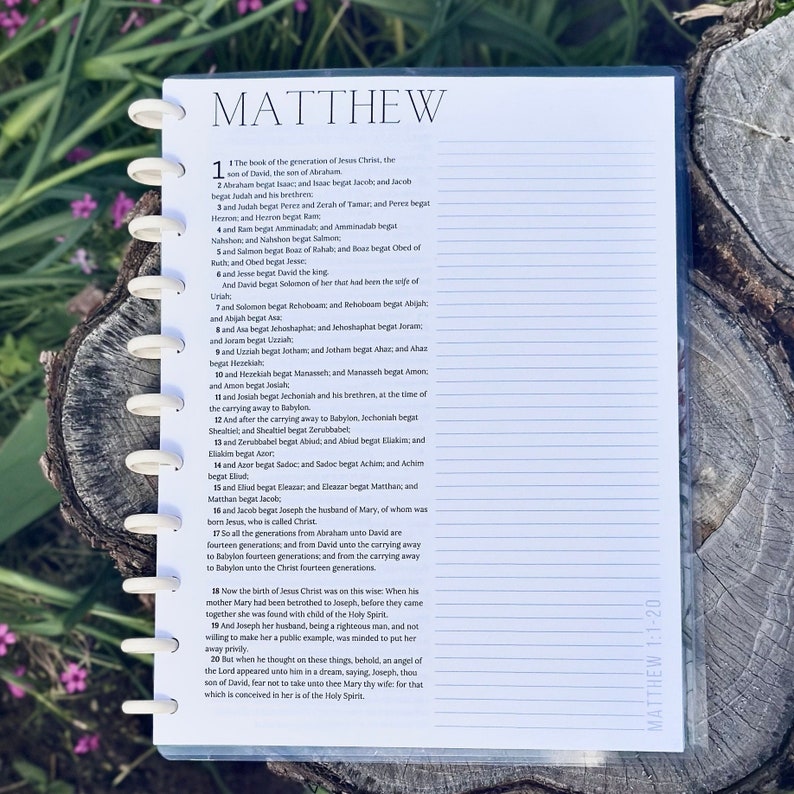 MATTHEW
1 1 The book of the generation of Jesus Christ, the
son of David, the son of Abraham.
2 Abraham begat Isaac; and Isaac begat Jacob; and Jacob
begat Judah and his brethren;
3 and Judah begat Perez and Zerah of Tamar; and Perez begat
Hezron; and Hezron begat Ram;
4 and Ram begat Amminadab; and Amminadab begat
Nahshon; and Nahshon begat Salmon;
5 and Salmon begat Boaz of Rahab; and Boaz begat Obed of
Ruth; and Obed begat Jesse;
6 and Jesse begat David the king.
And David begat Solomon of her that had been the wife of
Uriah;
7 and Solomon begat Rehoboam; and Rehoboam begat Abijah;
and Abijah begat Asa;
8 and Asa begat Jehoshaphat; and Jehoshaphat begat Joram;
and Joram begat Uzziah;
9 and Uzziah begat Jotham; and Jotham begat Ahaz; and Ahaz
begat Hezekiah;
10 and Hezekiah begat Manasseh; and Manasseh begat Amon;
and Amon begat Josiah;
11 and Josiah begat Jechoniah and his brethren, at the time of
the carrying away to Babylon.
12 And after the carrying away to Babylon, Jechoniah begat
Shealtiel; and Shealtiel begat Zerubbabel;
13 and Zerubbabel begat Abiud; and Abiud begat Eliakim; and
Eliakim begat Azor;
14 and Azor begat Sadoc; and Sadoc begat Achim; and Achim
begat Eliud;
15 and Eliud begat Eleazar; and Eleazar begat Matthan; and
Matthan begat Jacob;
16 and Jacob begat Joseph the husband of Mary, of whom was
born Jesus, who is called Christ.
17 So all the generations from Abraham unto David are
fourteen generations; and from David unto the carrying away
to Babylon fourteen generations; and from the carrying away
to Babylon unto the Christ fourteen generations.
18 Now the birth of Jesus Christ was on this wise: When his
mother Mary had been betrothed to Joseph, before they came
together she was found with child of the Holy Spirit.
19 And Joseph her husband, being a righteous man, and not
willing to make her a public example, was minded to put her
away privily.
20 But when he thought on these things, behold, an angel of
the Lord appeared unto him in a dream, saying, Joseph, thou
son of David, fear not to take unto thee Mary thy wife: for that
which is conceived in her is of the Holy Spirit.
MATTHEW 1:1-20